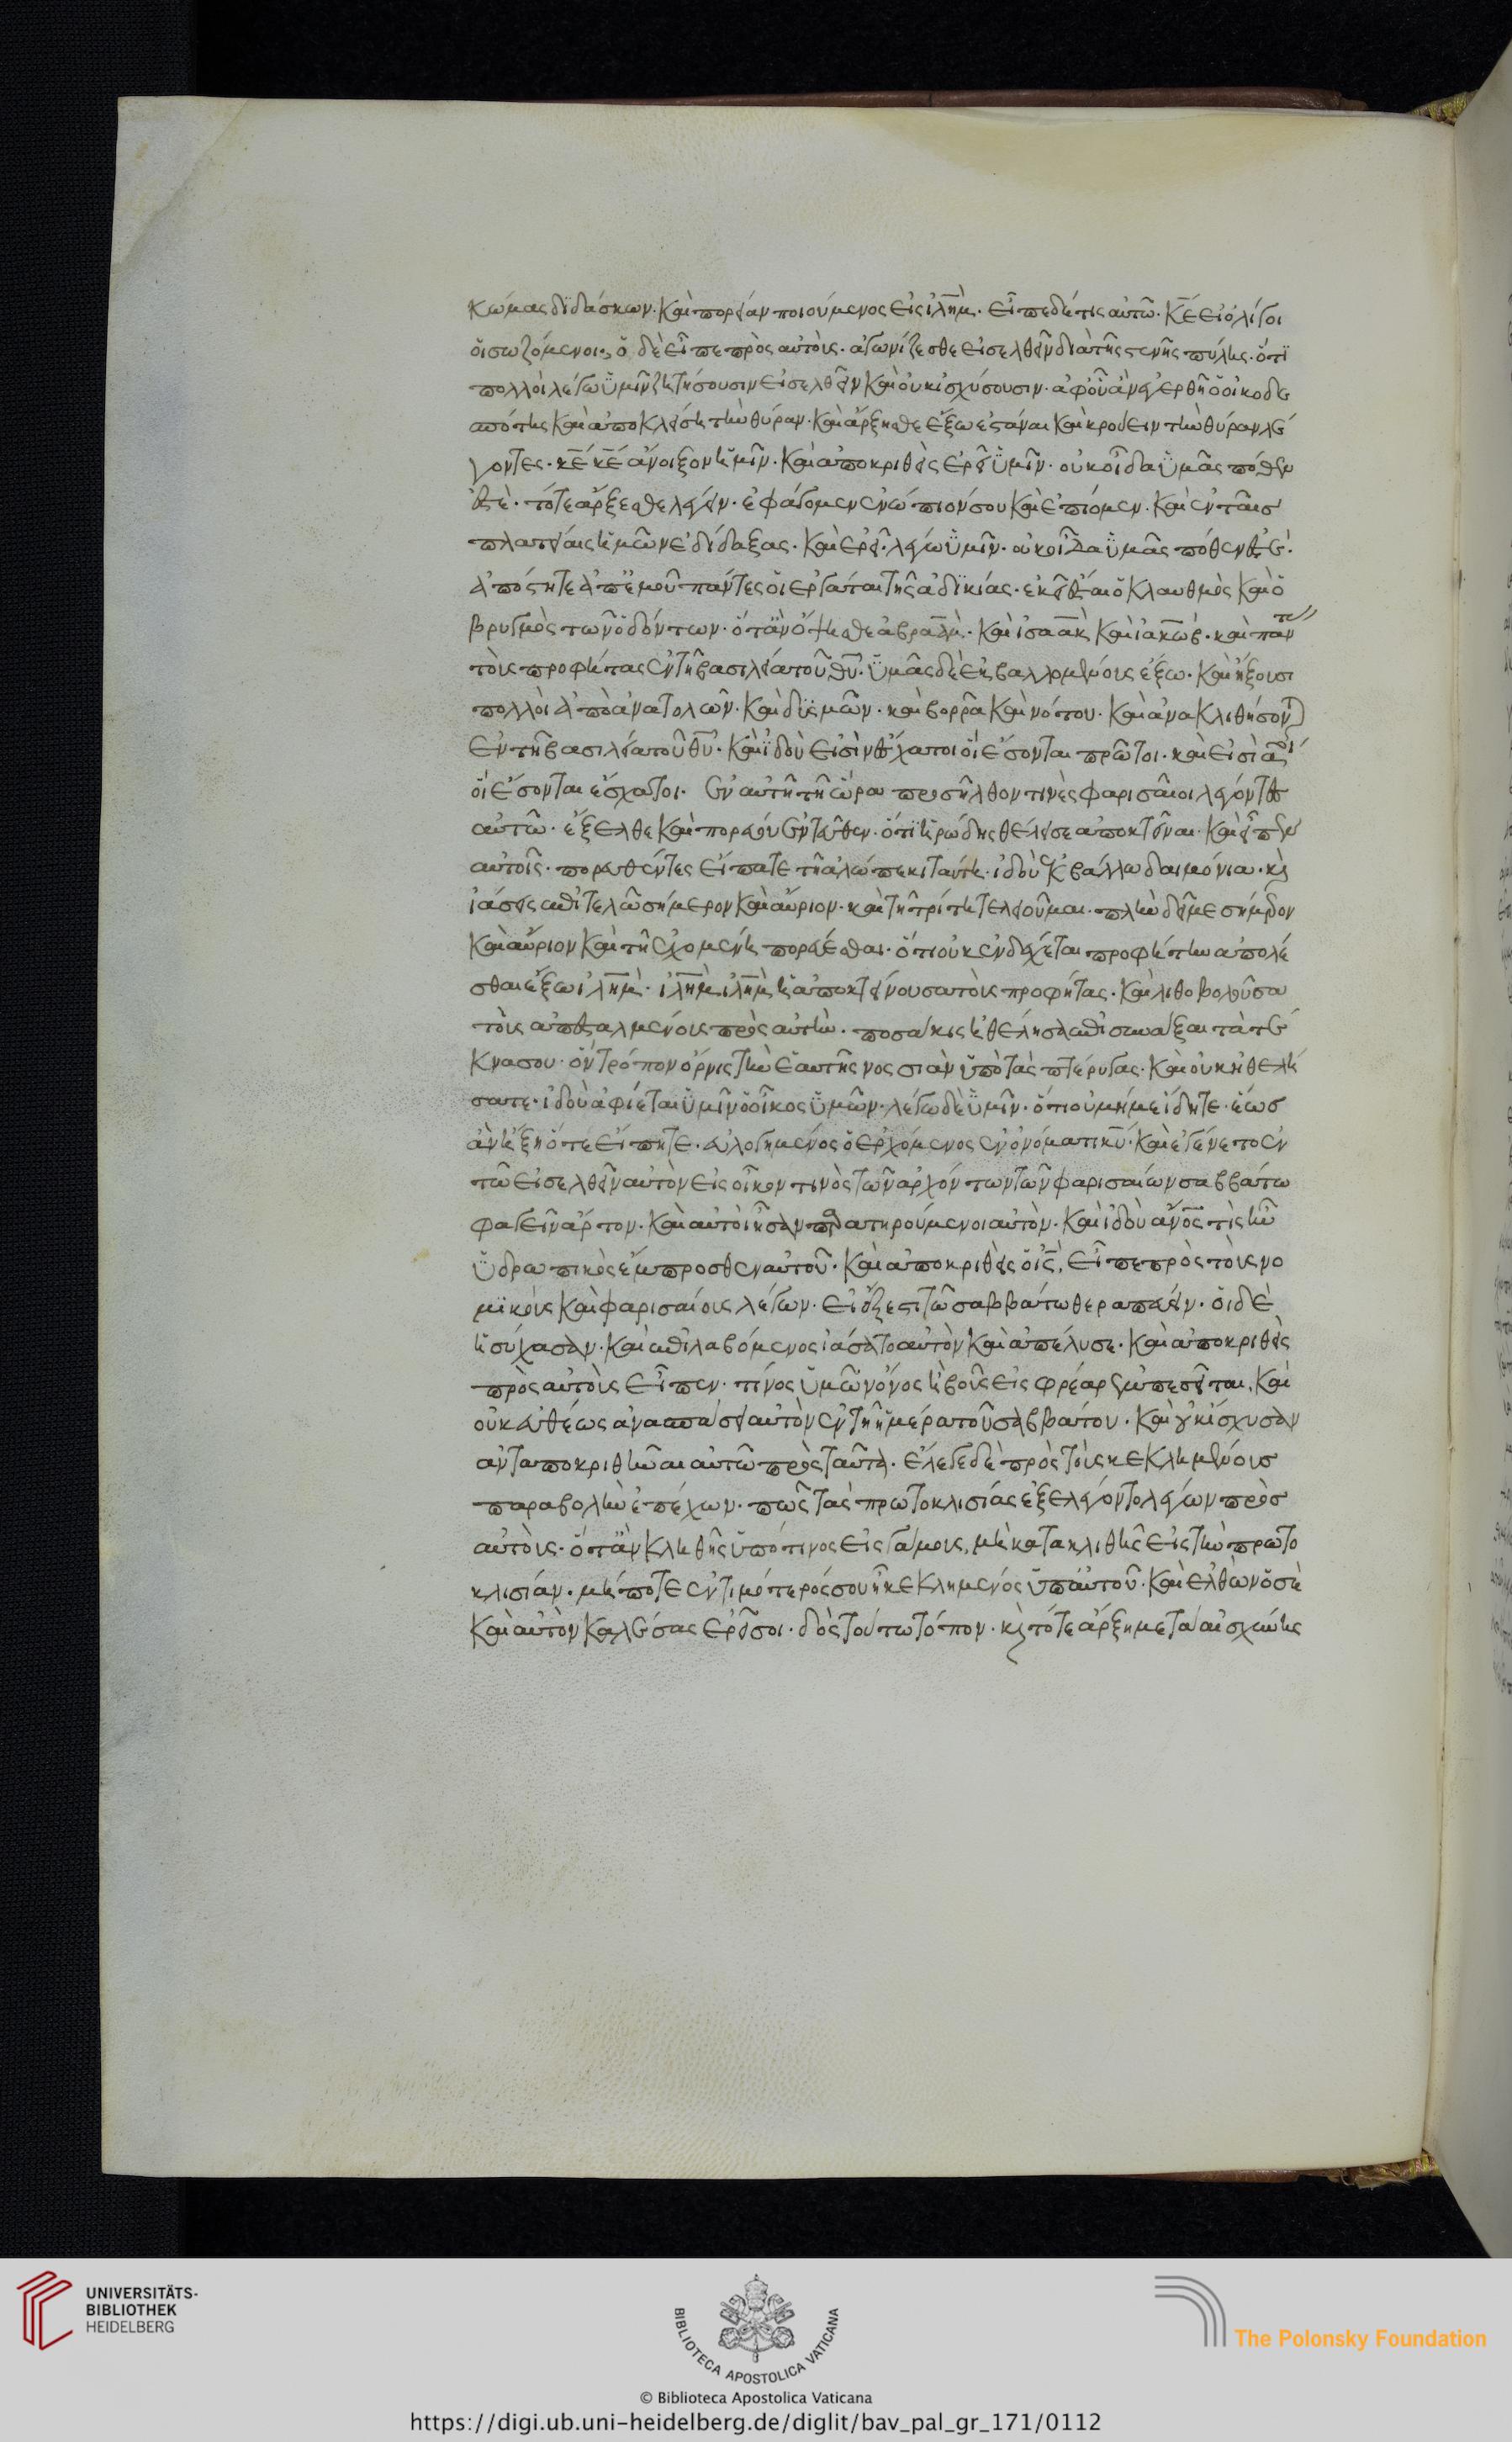 κώμας διδάσκων· καὶ πορείαν ποιούμενος εἰς ἰλῆμ· εἶπε δέ τις αὐτῶ· κ̅ε̅ εἰ ὀλίγοι
οἱ σωζόμενοι· ὁ δὲ εἶπε πρὸς αὐτοὺς· ἀγωνίζεσθε εἰσελθεῖν διὰ τῆς στενῆς πύλης· ὅτι
πολλοὶ λέγω ὑμῖν ζητήσουσιν εἰσελθεῖν καὶ οὐκ ἰσχύσουσιν· ἀφοῦ ἂν ἐγερθῆ ὁ οἰκοδε
σπότης καὶ ἀποκλείση τὴν θύραν· καὶ ἄρξησθε ἔξω ἑστάναι καὶ κρούειν τὴν θύραν λέ
γοντες· κ̅ε̅ κ̅ε̅ ἄνοιξον ἡμῖν· καὶ ἀποκριθεὶς ἐρεῖ ὑμῖν· οὐκ οἶδα ὑμᾶς πόθεν
ἐστὲ· τότε ἄρξεσθε λέγειν· ἐφάγομεν ἐνώπιόν σου καὶ ἐπίομεν· καὶ ἐν ταῖς
πλατείαις ἡμῶν ἐδίδαξας· καὶ ἐρεῖ· λέγω ὑμῖν· οὐκ οἶδα ὑμᾶς πόθεν ἐστέ·
ἀπόστητε ἀπ' ἐμοῦ πάντες οἱ ἐργάται τῆς ἀδικίας· ἐκεῖ ἔσται ὁ κλαυθμὸς καὶ ὁ
βρυγμὸς τῶν ὀδόντων· ὅταν ὄψησθε ἀβραὰμ· καὶ ἰσαὰκ καὶ ἰακώβ· καὶ πάντ
τοὺς προφήτας ἐν τῆ βασιλεία τοῦ θ̅υ̅· ὑμᾶς δὲ ἐκβαλλομένους ἔξω· καὶ ἥξουσι
πολλοὶ ἀπὸ ἀνατολῶν· καὶ δυσμῶν· καὶ βορρᾶ καὶ νότου· καὶ ἀνακλιθήσονται
ἐν τῆ βασιλεία τοῦ θ̅υ̅· καὶ ἰδοὺ εἰσὶν ἔσχατοι οἳ ἔσονται πρῶτοι· καὶ εἰσὶ αοι
οἳ ἔσονται ἔσχατοι· ἐν αὐτῆ τῆ ὥρα προσῆλθον τινὲς φαρισαῖοι λέγοντες
αὐτῶ· ἔξελθε καὶ πορεύου ἐντεῦθεν· ὅτι ἡρώδης θέλει σε ἀποκτεῖναι· καὶ εἶπεν
αὐτοῖς· πορευθέντες εἴπατε τῆ ἀλώπεκι ταύτη· ἰδοὺ ἐκβάλλω δαιμόνια· κ
ἰάσεις ἐπιτελῶ σήμερον καὶ αὔριον· καὶ τῆ τρίτη τελειοῦμαι· πλὴν δεῖ με σήμερον
καὶ αὔριον καὶ τῆ ἐχομένη πορεύεσθαι· ὅτι οὐκ ἐνδέχεται προφήτην ἀπολέ
σθαι ἔξω ἰλημ̀· ἰλημ̀ ἰλημ̀ ἡ ἀποκτείνουσα τοὺς προφήτας· καὶ λιθοβολοῦσα
τοὺς ἀπεσταλμένους πρὸς αὐτὴν· ποσάκις ἠθέλησα ἐπισυνάξαι τὰ τέ
κνα σου· ὃν τρόπον ὄρνις τὴν ἑαυτῆς νοσσιὰν ὑπὸ τὰς πτέρυγας· καὶ οὐκ ἠθελή
σατε· ἰδοὺ ἀφίεται ὑμῖν ὁ οἶκος ὑμῶν· λέγω δὲ ὑμῖν· ὅτι οὐ μή με ἴδητε· ἕως
ἂν ἥξη ὅτε εἴπητε· εὐλογημένος ὁ ἐρχόμενος ἐν ὀνόματι κ̅υ̅· καὶ ἐγένετο ἐν
τῶ εἰσελθεῖν αὐτὸν εἰς οἶκον τινὸς τῶν ἀρχόντων τῶν φαρισαίων σαββάτω
φαγεῖν ἄρτον· καὶ αὐτοὶ ἦσαν παρατηρούμενοι αὐτὸν· καὶ ἰδοὺ ἄν̅ο̅ς̅ τὶς ἦν
ὑδρωπικὸς ἔμπροσθεν αὐτοῦ· καὶ ἀποκριθεὶς ὁ ι̅ς̅, εἶπε πρὸς τοὺς νο
μικοὺς καὶ φαρισαίους λέγων· εἰ ἔξεστι τῶ σαββάτω θεραπεύειν· οἱ δὲ
ἡσύχασαν· καὶ ἐπιλαβόμενος ἰάσατο αὐτὸν καὶ ἀπέλυσε· καὶ ἀποκριθεὶς
πρὸς αὐτοὺς εἶπεν· τίνος ὑμῶν ὄνος ἢ βοῦς εἰς φρέαρ ἐμπεσεῖται, καὶ
οὐκ εὐθέως ἀνασπάσει αὐτὸν ἐν τῆ ἡμέρα τοῦ σαββάτου· καὶ οὐκ ἴσχυσαν
ἀνταποκριθῆναι αὐτῶ πρὸς ταῦτα· ἔλεγε δὲ πρὸς τοὺς κεκλημένους
παραβολὴν ἐπέχων· πῶς τὰς πρωτοκλισίας ἐξελέγοντο λέγων πρὸς
αὐτοὺς· ὅταν κληθῆς ὑπό τινος εἰς γάμους, μὴ κατακλιθῆς εἰς τὴν πρωτο
κλισίαν· μήποτε ἐντιμότερός σου ἦ κεκλημενός ὑπ' αὐτοῦ· καὶ ἐλθὼν ὁ σὲ
καὶ αὐτὸν καλέσας ἐρεῖ σοι· δὸς τούτω τόπον· κ τότε ἄρξη μετὰ αἰσχύνης
UNIVERSITÄTS-
BIBLIOTHEK
HEIDELBERG
BIBLIOTECA APOSTOLICA VATICANA
The Polonsky Foundation
© Biblioteca Apostolica Vaticana
https://digi.ub.uni-heidelberg.de/diglit/bav_pal_gr_171/0112